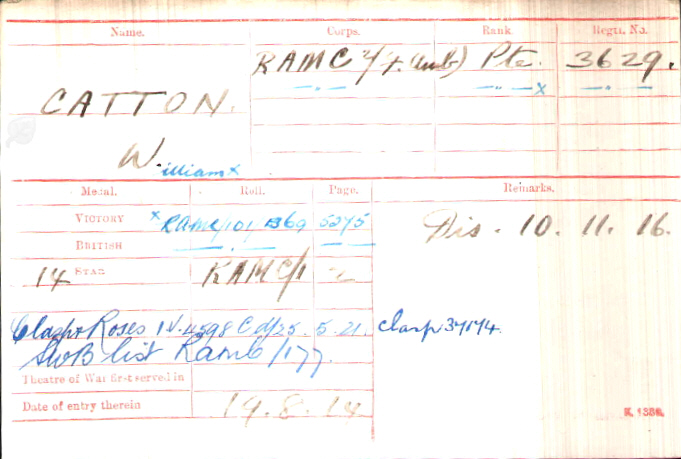 Name. Corps. Rank. Regtl. No.
CATTON. RAMC 2/F. (Amb) Pte. 3629.
— " — — " — x — " —
W. illiam x
Medal. Roll. Page. Remarks.
VICTORY x RAMC/101 B69 5275 Dis. 10. 11. 16.
BRITISH — " — — " —
14 STAR RAMC/1 2
Clasp & Roses IV. 4598 5.21. clasp 34174.
SWB list RAMC/177.
Theatre of War first served in
Date of entry therein 19.8.14
K. 1380.